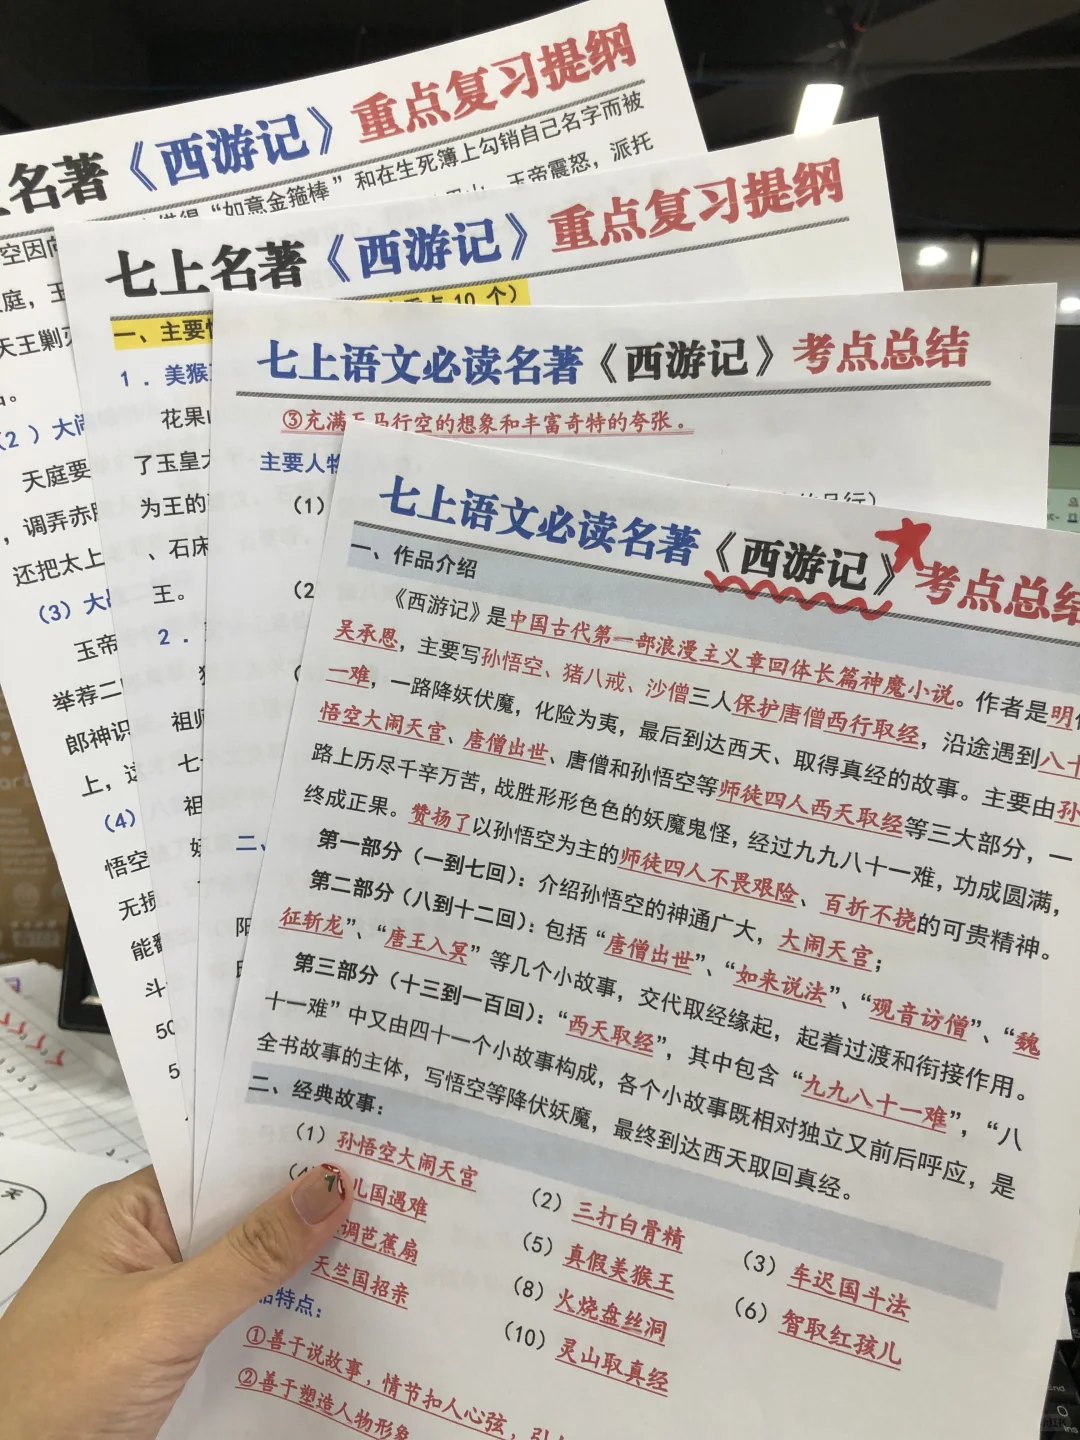 名著《西游记》重点复习提纲
“如意金箍棒”和在生死簿上勾销自己名字而被
玉帝震怒，派托
空因
庭，玉
天王剿
（2）大闹
天庭要
，调弄赤脚
还把太上
（3）大战
玉帝
举荐二
郎神识
上，这
（4）
悟空
无损
能翻
斗
50
5
七上名著《西游记》重点复习提纲
一、主要情
10 个）
1．美猴王
花果山
了玉皇大
为王的
、石床
王。
2．
祖师
七
祖
七上语文必读名著《西游记》考点总结
③充满天马行空的想象和丰富奇特的夸张。
主要人物
（1）
（2
二、
阳
七上语文必读名著《西游记》考点总结
一、作品介绍
《西游记》是中国古代第一部浪漫主义章回体长篇神魔小说。作者是明
吴承恩，主要写孙悟空、猪八戒、沙僧三人保护唐僧西行取经，沿途遇到八十
一难，一路降妖伏魔，化险为夷，最后到达西天、取得真经的故事。主要由孙
悟空大闹天宫、唐僧出世、唐僧和孙悟空等师徒四人西天取经等三大部分，一
路上历尽千辛万苦，战胜形形色色的妖魔鬼怪，经过九九八十一难，功成圆满，
终成正果。赞扬了以孙悟空为主的师徒四人不畏艰险、百折不挠的可贵精神。
第一部分（一到七回）：介绍孙悟空的神通广大，大闹天宫；
第二部分（八到十二回）：包括“唐僧出世”、“如来说法”、“观音访僧”、“魏
征斩龙”、“唐王入冥”等几个小故事，交代取经缘起，起着过渡和衔接作用。
第三部分（十三到一百回）：“西天取经”，其中包含“九九八十一难”，“八
十一难”中又由四十一个小故事构成，各个小故事既相对独立又前后呼应，是
全书故事的主体，写悟空等降伏妖魔，最终到达西天取回真经。
二、经典故事：
（1）孙悟空大闹天宫 （2）三打白骨精 （3）车迟国斗法
儿国遇难 （5）真假美猴王 （6）智取红孩儿
调芭蕉扇 （8）火烧盘丝洞
天竺国招亲 （10）灵山取真经
特点：
①善于说故事，情节扣人心弦，引
②善于塑造人物形象